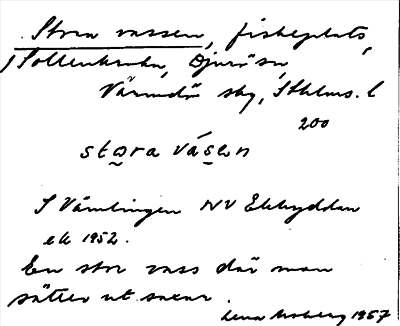 Stora vassen, fiskeplats,
Sollenkroka, Djurö sn,
Värmdö sbg, Sthlms. l
200
stora vásen
I Vämlingen NV Ekhyddan
ek 1952.
En stor vass där man
sätter ut saxar.
Lena Moberg 1957